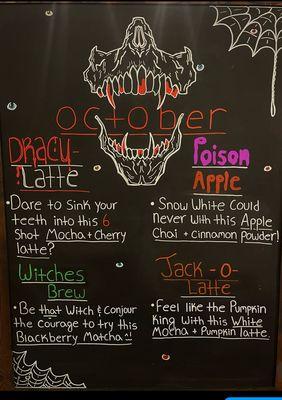 October
Dracu-
Latte
• Dare to sink your
teeth into this 6
Shot Mocha + Cherry
latte?
Poison
Apple
• Snow White Could
never With this Apple
Chai + cinnamon powder!
Witches
Brew
• Be that Witch & Conjour
the courage to try this
Blackberry Matcha!
Jack-O-
Latte
• Feel like the Pumpkin
King With this White
Mocha + Pumpkin latte.